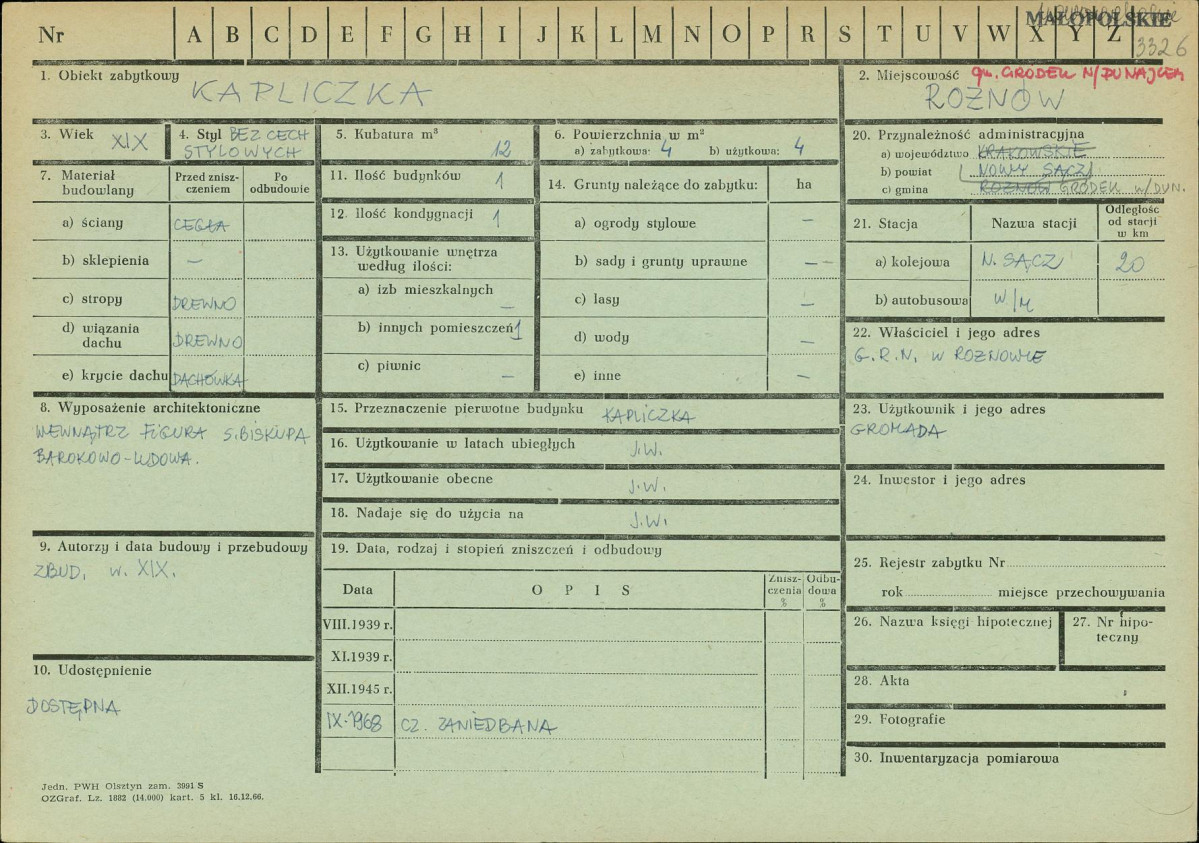 Nr A B C D E F G H I J K L M N O P R S T U V W X Y Z
MAŁOPOLSKIE
3326
1. Obiekt zabytkowy KAPLICZKA
2. Miejscowość gm. GRÓDEK N/DUNAJCEM
ROŻNÓW
3. Wiek XIX
4. Styl BEZ CECH
STYLOWYCH
5. Kubatura m³ 12
6. Powierzchnia w m²
a) zabytkowa: 4 b) użytkowa: 4
7. Materiał budowlany
Przed zniszczeniem
Po odbudowie
a) ściany CEGŁA
b) sklepienia —
c) stropy DREWNO
d) wiązania dachu DREWNO
e) krycie dachu DACHÓWKA
8. Wyposażenie architektoniczne
WEWNĄTRZ FIGURA Ś. BISKUPA
BAROKOWO-LUDOWA.
9. Autorzy i data budowy i przebudowy
ZBUD. W. XIX.
10. Udostępnienie
DOSTĘPNA
11. Ilość budynków 1
12. Ilość kondygnacji 1
13. Użytkowanie wnętrza
według ilości:
a) izb mieszkalnych —
b) innych pomieszczeń 1
c) piwnic —
14. Grunty należące do zabytku: ha
a) ogrody stylowe —
b) sady i grunty uprawne — —
c) lasy —
d) wody —
e) inne —
15. Przeznaczenie pierwotne budynku KAPLICZKA
16. Użytkowanie w latach ubiegłych J.W.
17. Użytkowanie obecne J.W.
18. Nadaje się do użycia na J.W.
19. Data, rodzaj i stopień zniszczeń i odbudowy
Data O P I S Zniszczenia % Odbudowa %
VIII.1939 r.
XI.1939 r.
XII.1945 r.
IX-1968 CZ. ZANIEDBANA
20. Przynależność administracyjna
a) województwo KRAKOWSKIE
b) powiat NOWY SĄCZ
c) gmina ROŻNÓW GRÓDEK N/DUN.
21. Stacja Nazwa stacji Odległość od stacji w km
a) kolejowa N. SĄCZ 20
b) autobusowa W/M
22. Właściciel i jego adres
G.R.N. W ROŻNOWIE
23. Użytkownik i jego adres
GROMADA
24. Inwestor i jego adres
25. Rejestr zabytku Nr
rok miejsce przechowywania
26. Nazwa księgi hipotecznej
27. Nr hipoteczny
28. Akta
29. Fotografie
30. Inwentaryzacja pomiarowa
Jedn. PWH Olsztyn zam. 3991 S
OZGraf. Lz. 1882 (14.000) kart. 5 kl. 16.12.66.